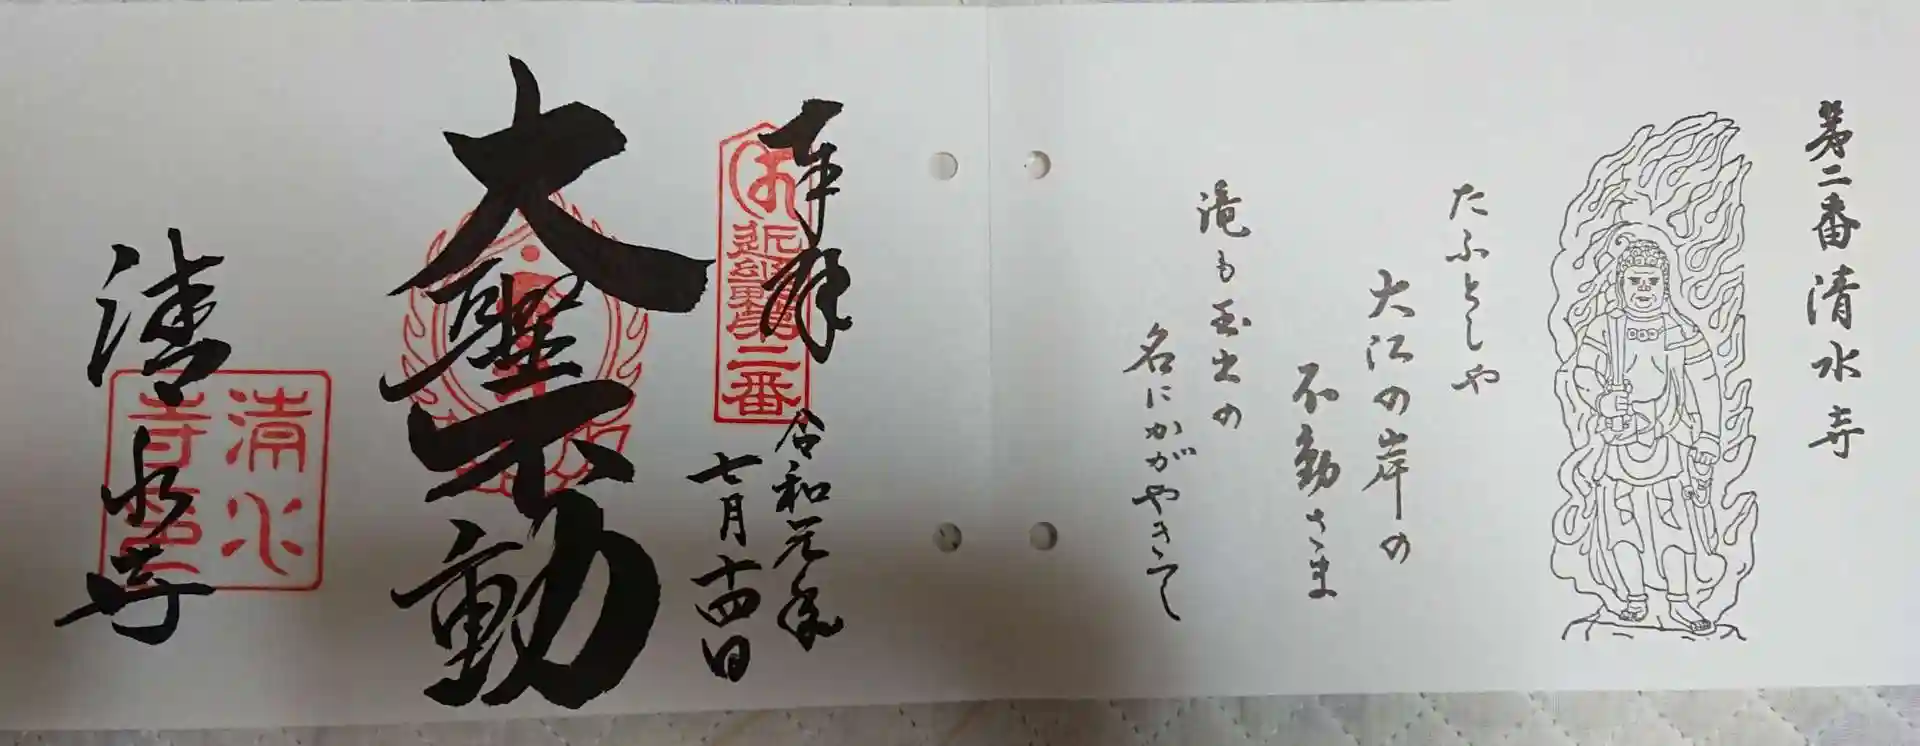 第二番清水寺
たふとしや
大江の岸の
不動さま
滝も玉出の
名にかがやきて
奉拝
令和元年
七月十四日
近畿第二番
大聖不動
清水寺
清水